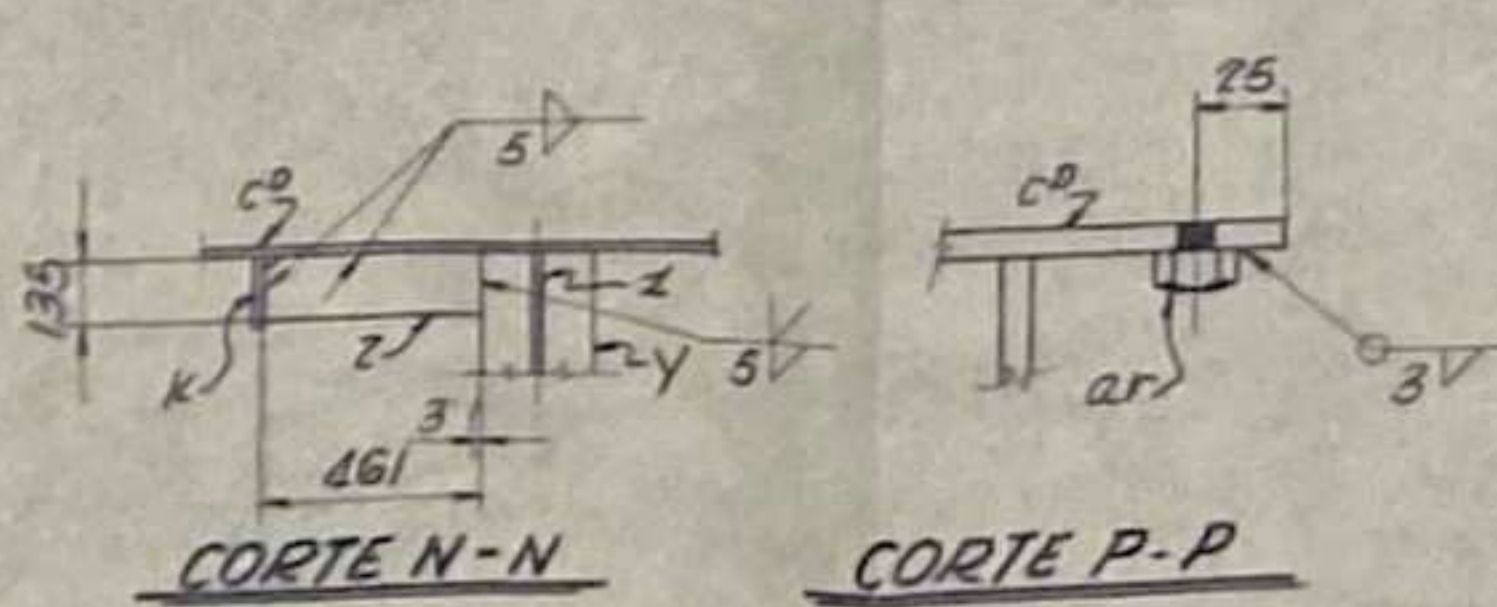 5
C^D
135
1
z
K
y
5
3
461
CORTE N-N
25
C^D
ar
3
CORTE P-P